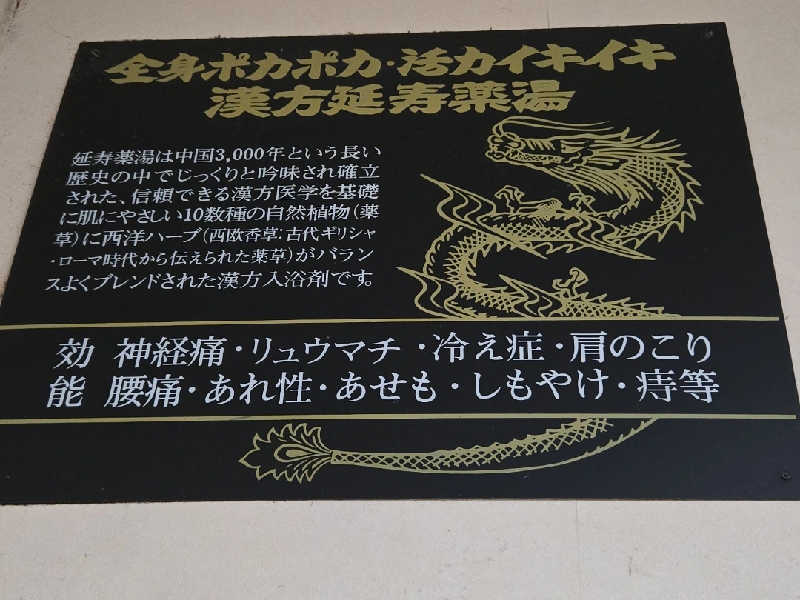 全身ポカポカ・活力イキイキ
漢方延寿薬湯
延寿薬湯は中国3,000年という長い
歴史の中でじっくりと吟味され確立
された、信頼できる漢方医学を基礎
に肌にやさしい10数種の自然植物(薬
草)に西洋ハーブ(西欧香草:古代ギリシャ
・ローマ時代から伝えられた薬草)がバラン
スよくブレンドされた漢方入浴剤です。
効 神経痛・リュウマチ・冷え症・肩のこり
能 腰痛・あれ性・あせも・しもやけ・痔等